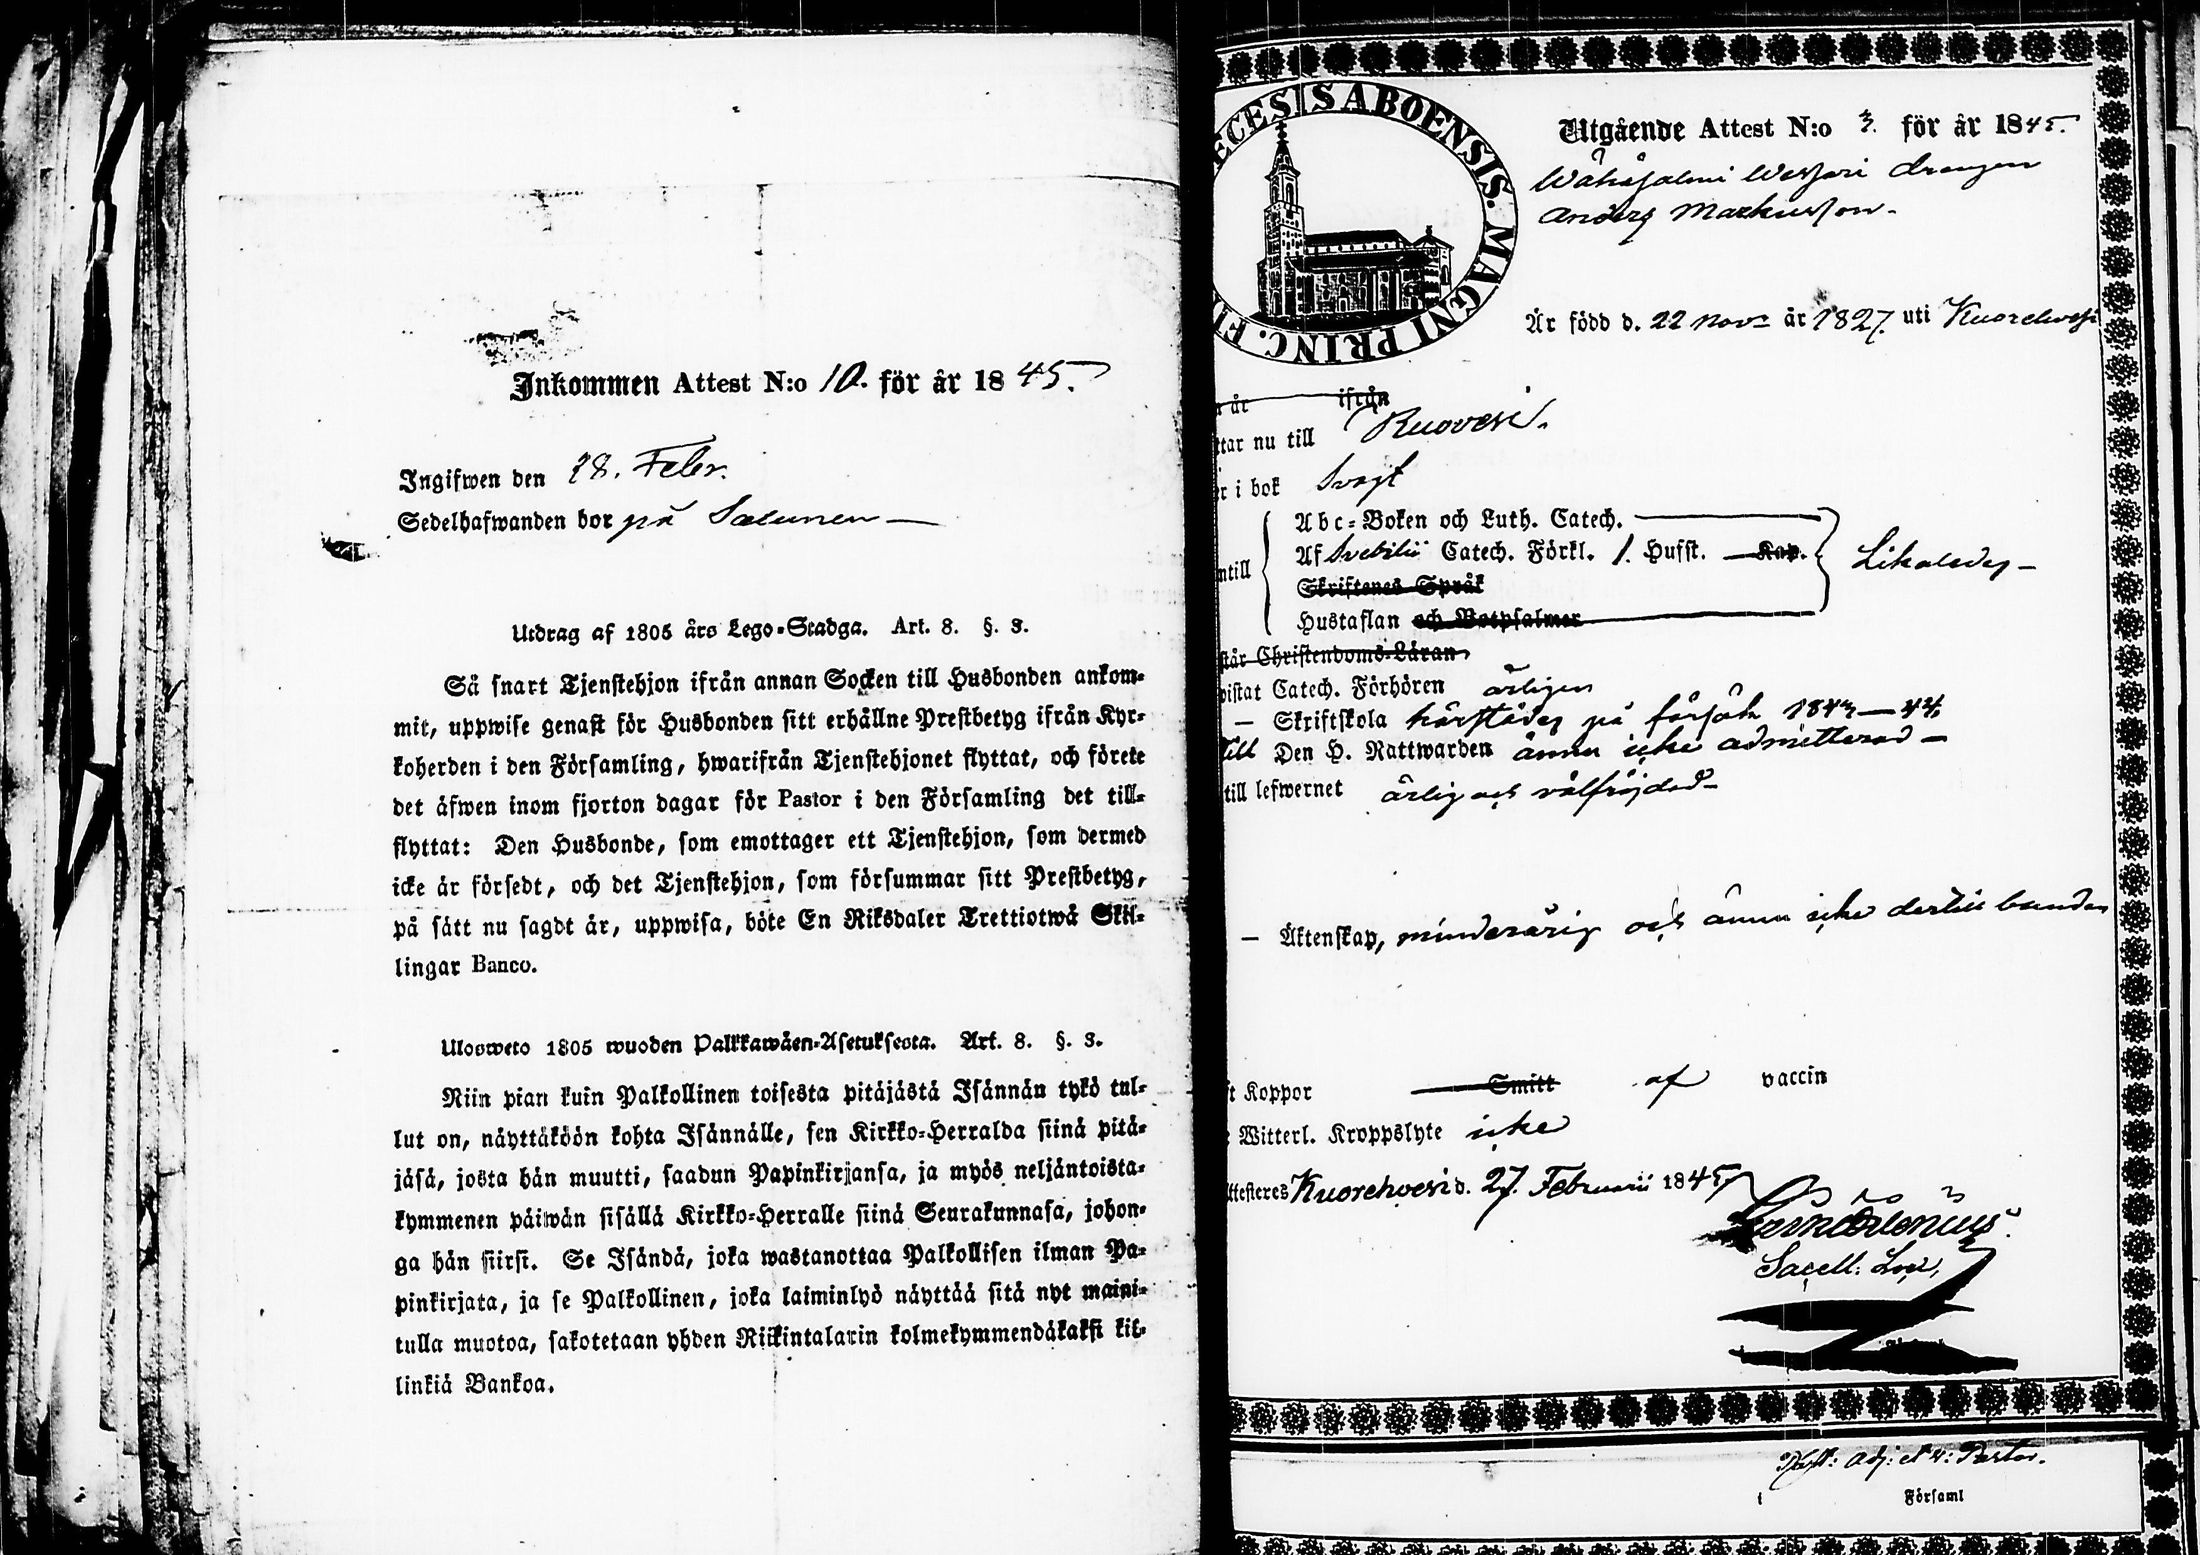 Inkommen Attest N:o 10. för år 1845.
Ingifwen den 28. Febr.
Sedelhafwanden bor på Salunen —
Utdrag af 1805 års Lego-Stadga. Art. 8. §. 3.
Så snart Tjenstehjon ifrån annan Socken till Husbonden ankom-
mit, uppwise genast för Husbonden sitt erhållne Prestbetyg ifrån Kyr-
koherden i den Församling, hwarifrån Tjenstehjonet flyttat, och förete
det äfwen inom fjorton dagar för Pastor i den Församling det till-
flyttat: Den Husbonde, som emottager ett Tjenstehjon, som dermed
icke är försedt, och det Tjenstehjon, som försummar sitt Prestbetyg,
på sätt nu sagdt är, uppwisa, böte En Riksdaler Trettiotwå Skil-
lingar Banco.
Ulosweto 1805 wuoden Palkkawäen-Asetuksesta. Art. 8. §. 3.
Niin pian kuin Palkollinen toisesta pitäjästä Isännän tykö tul-
lut on, näyttäköön kohta Isännälle, sen Kirkko-Herralda siinä pitä-
jäsä, josta hän muutti, saadun Papinkirjansa, ja myös neljäntoista-
kymmenen päiwän sisällä Kirkko-Herralle siinä Seurakunnasa, johon-
ga hän siirsi. Se Isändä, joka wastanottaa Palkollisen ilman Pa-
pinkirjata, ja se Palkollinen, joka laiminlyö näyttää sitä nyt maini-
tulla muotoa, sakotetaan yhden Riikintalarin kolmekymmendäkaksi kil-
linkiä Bankoa.
ECESIS ABOENSIS. MAGNI PRINC. FI
Utgående Attest N:o 3. för år 1845.
drengen
Anders Markusson.
Är född d. 22 Nov: år 1827. uti Kuorehvesi
år ifrån
ttar nu till Ruovesi.
r i bok Svagt
Abc-Boken och Luth. Catech.
Af Svebilii Catech. Förkl. 1. Hufst. Kap.
ntill Likaledes —
Skriftenes Språk
Hustaflan och Botpsalmer
står Christendoms-Läran
vistat Catech. Förhören årligen
— Skriftskola härstädes på försök 1843—44.
till Den H. Nattwarden ännu icke admitterad —
till lefwernet ärlig och välfrejdad —
— Äktenskap, minderårig och ännu icke dertill bunden
t Koppor Smitt af vaccin
Witterl. Kroppslyte icke
ttesteres Kuorehvesi d. 27. Februarii 1845.
Sacell: Loci,
Adj: et v: Pastor.
i Församl